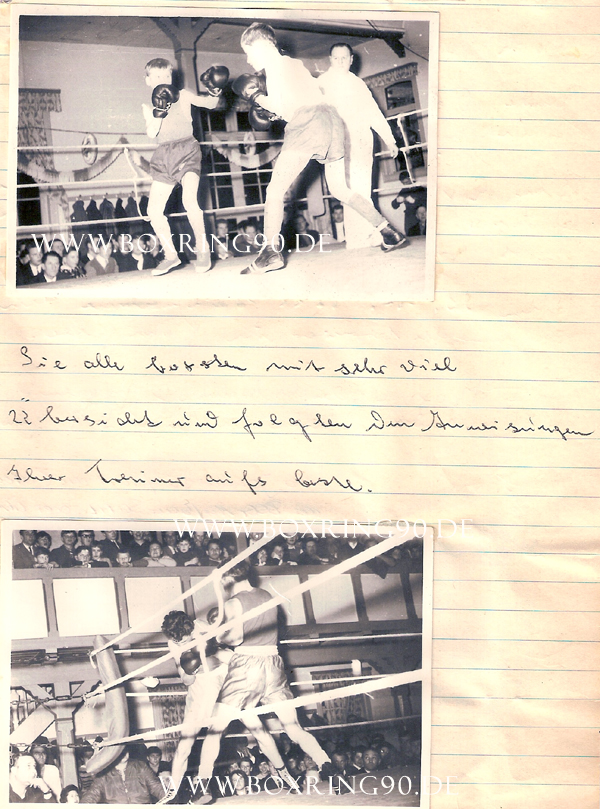 WWW.BOXRING90.DE
Sie alle boxsten mit sehr viel
Übersicht und folgten den Anweisungen
ihrer Trainer aufs beste.
WWW.BOXRING90.DE
WWW.BOXRING90.DE